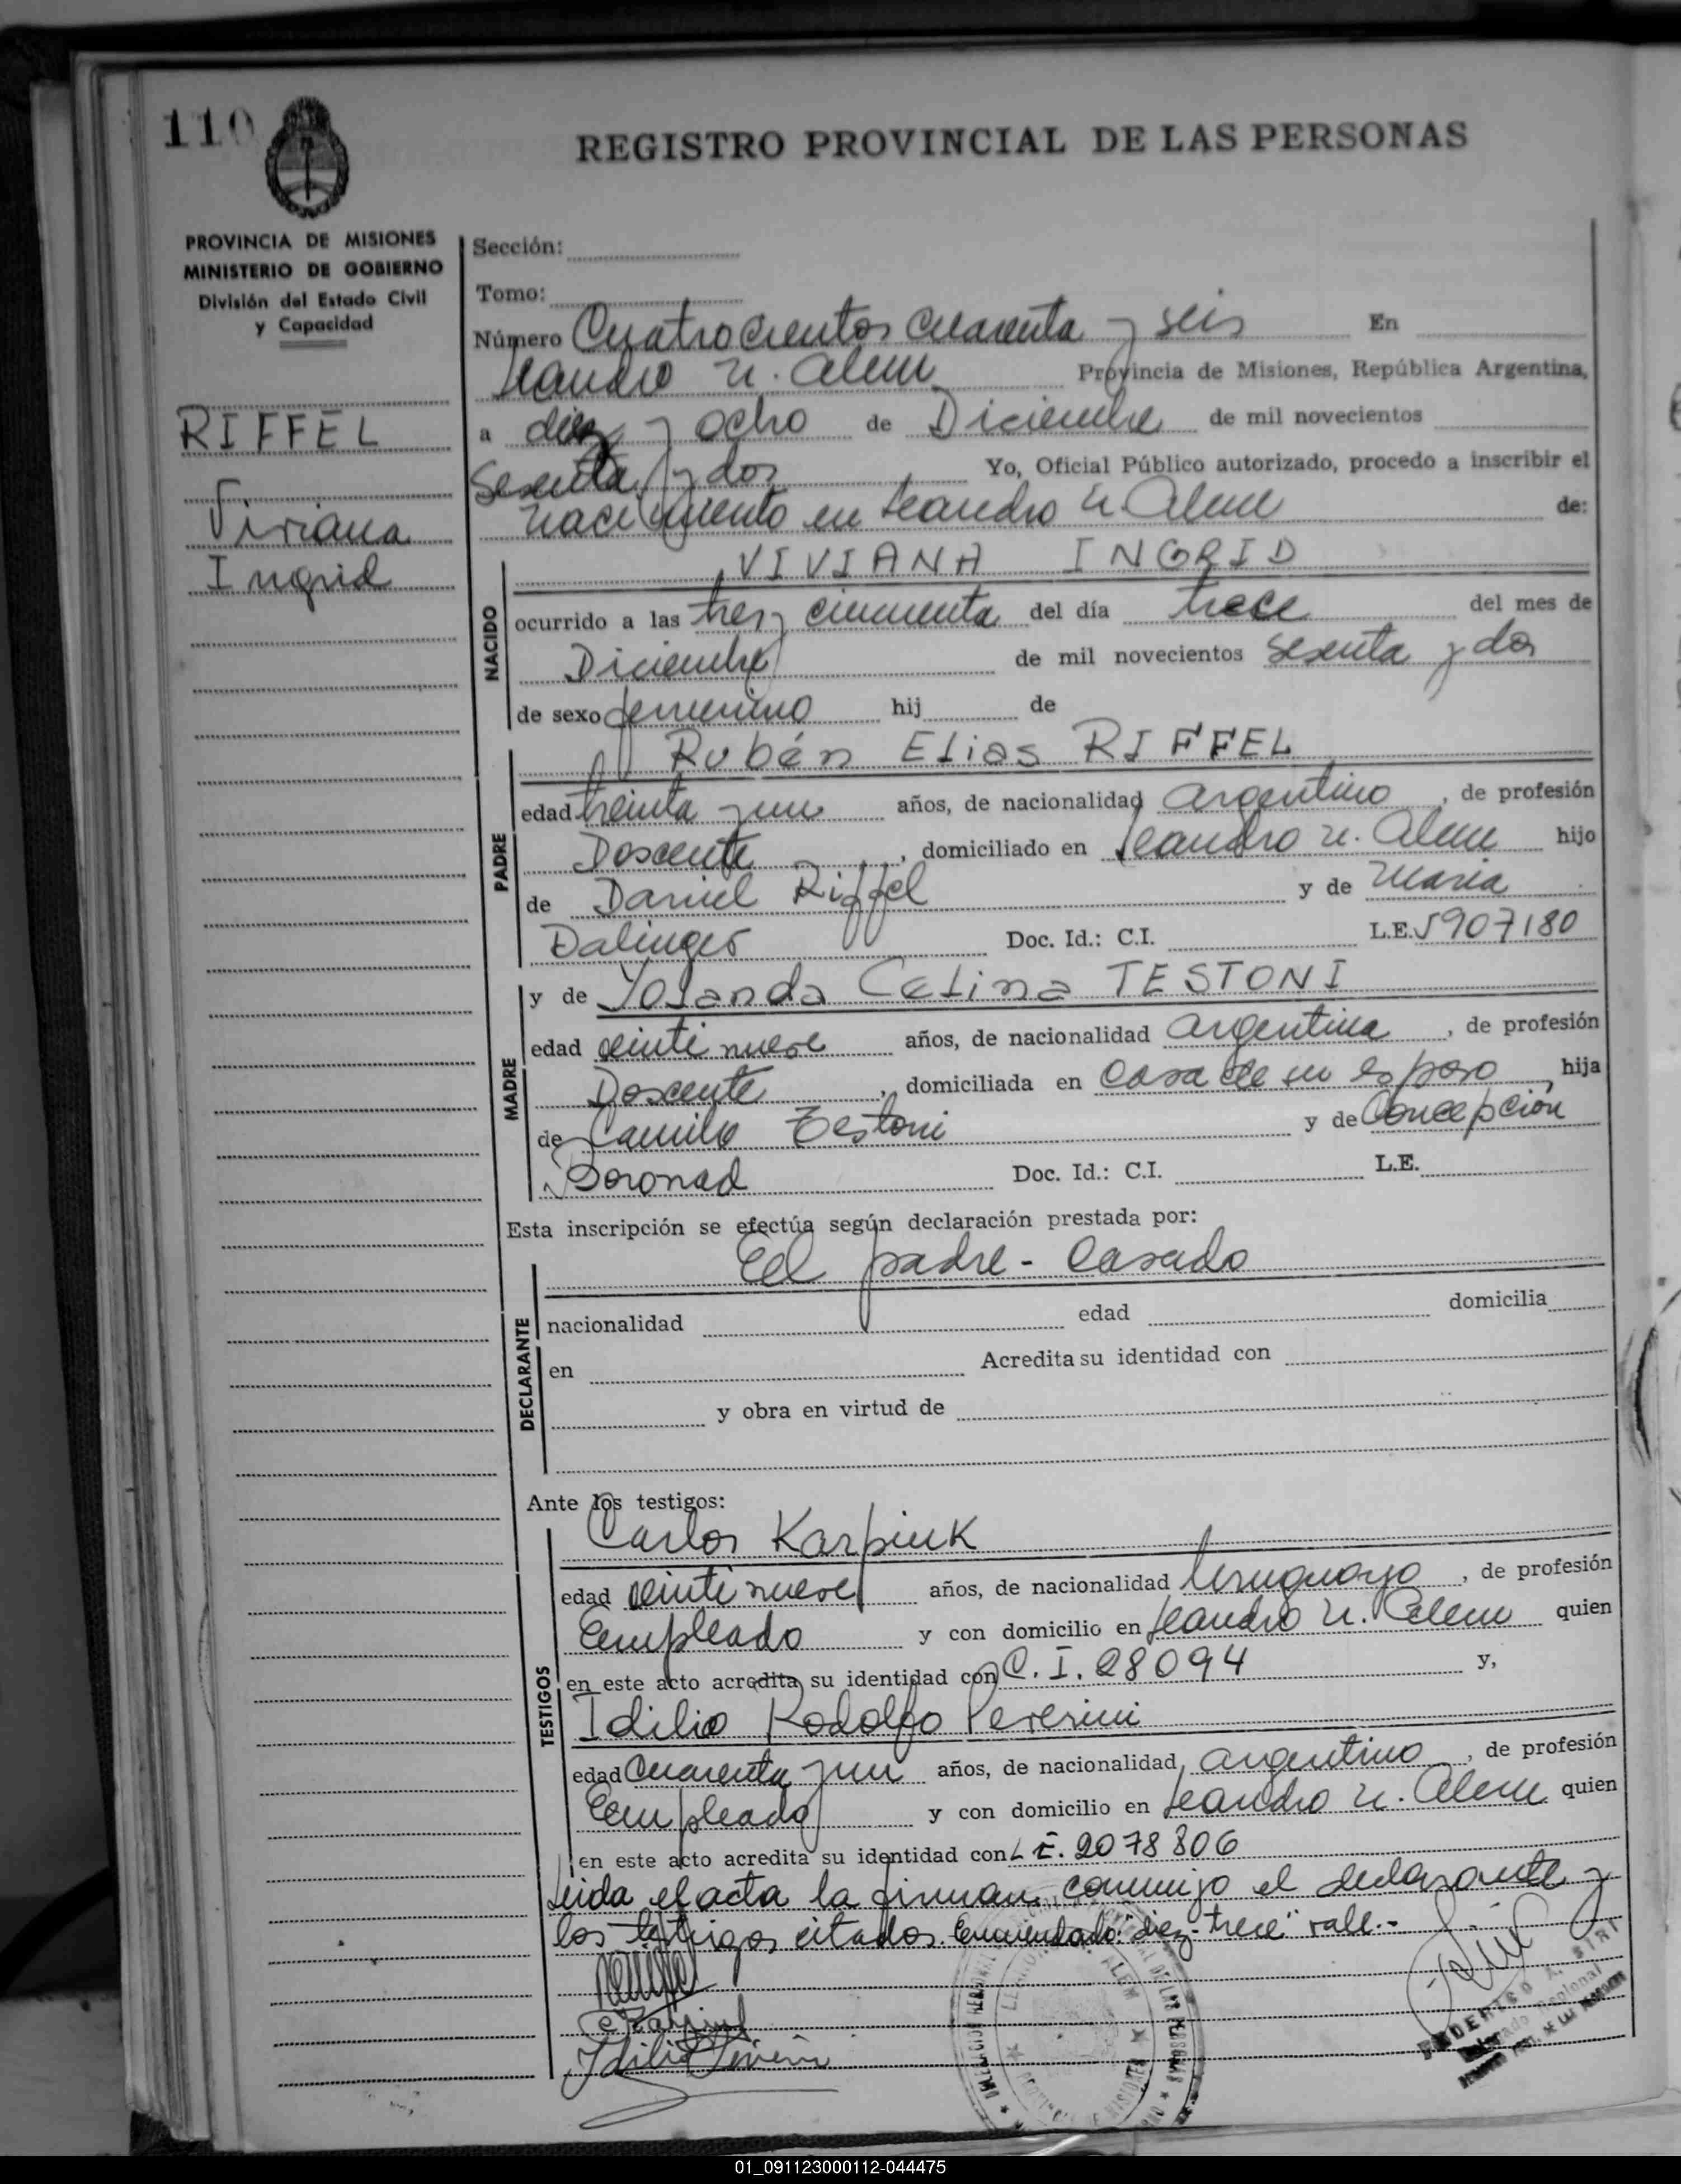 110
REGISTRO PROVINCIAL DE LAS PERSONAS
PROVINCIA DE MISIONES
MINISTERIO DE GOBIERNO
División del Estado Civil
y Capacidad
RIFFEL
Viviana
Ingrid
Sección:
Tomo:
Número Cuatrocientos cuarenta y seis En
Leandro N. Alem Provincia de Misiones, República Argentina,
a diez y ocho de Diciembre de mil novecientos
Sesenta y dos Yo, Oficial Público autorizado, procedo a inscribir el
nacimiento en Leandro N. Alem de:
VIVIANA INGRID
NACIDO
ocurrido a las tres y cincuenta del día trece del mes de
Diciembre de mil novecientos sesenta y dos
de sexo femenino hij de
Rubén Elias RIFFEL
PADRE
edad treinta y un años, de nacionalidad argentino, de profesión
Doscente, domiciliado en Leandro N. Alem hijo
de Daniel Riffel y de Maria
Dalinger Doc. Id.: C.I. L.E. 5907180
MADRE
y de Yolanda Celina TESTONI
edad veinti nueve años, de nacionalidad argentina, de profesión
Doscente, domiciliada en casa de su esposo, hija
de Camilo Testoni y de Concepción
Boronad Doc. Id.: C.I. L.E.
Esta inscripción se efectúa según declaración prestada por:
El padre - Casado
DECLARANTE
nacionalidad edad domicilia
en Acredita su identidad con
y obra en virtud de
Ante los testigos:
TESTIGOS
Carlos Karpiuk
edad veinti nueve años, de nacionalidad Uruguayo, de profesión
Empleado y con domicilio en Leandro N. Alem quien
en este acto acredita su identidad con C.I. 28094 y,
Idilio Rodolfo Peresini
edad Cuarenta y un años, de nacionalidad argentino, de profesión
Empleado y con domicilio en Leandro N. Alem quien
en este acto acredita su identidad con L.E. 2078806
Leida el acta la firman conmigo el declarante y
los testigos citados Enmendado: "diez-trece" vale.-
LEANDRO N. ALEM
PROVINCIA DE MISIONES
FEDERICO A. SIRI
01_091123000112-044475